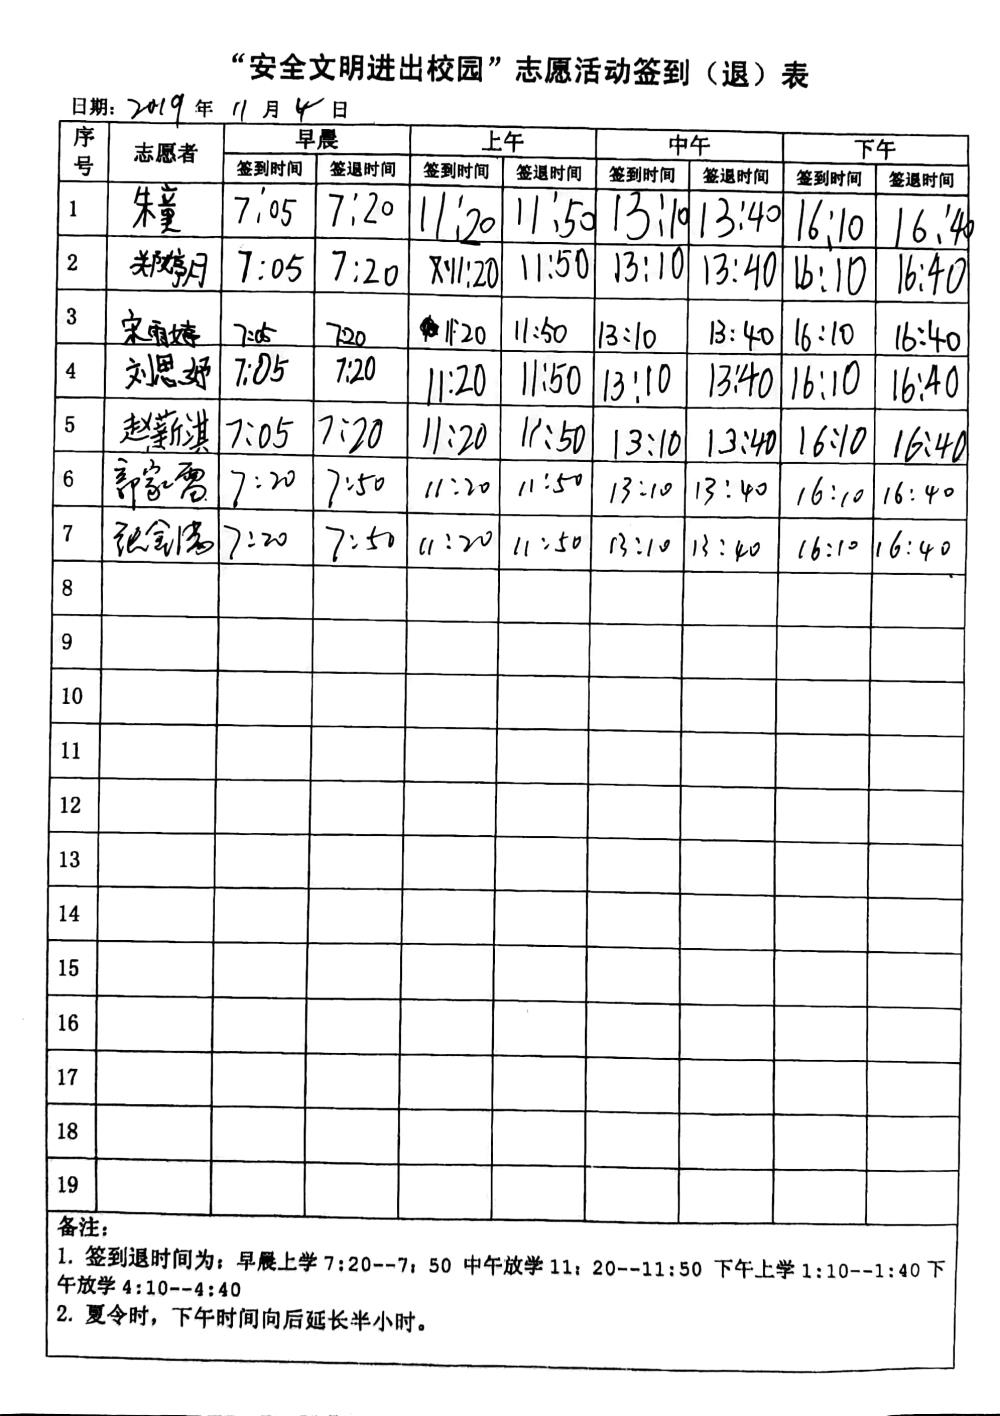 “安全文明进出校园”志愿活动签到（退）表
日期：2019 年 11 月 4 日
序号 志愿者 早晨 上午 中午 下午
签到时间 签退时间 签到时间 签退时间 签到时间 签退时间 签到时间 签退时间
1 朱童 7:05 7:20 11:20 11:50 13:10 13:40 16:10 16:40
2 郑婷月 7:05 7:20 11:20 11:50 13:10 13:40 16:10 16:40
3 宋雨婷 7:05 7:20 11:20 11:50 13:10 13:40 16:10 16:40
4 刘思妤 7:05 7:20 11:20 11:50 13:10 13:40 16:10 16:40
5 赵薪淇 7:05 7:20 11:20 11:50 13:10 13:40 16:10 16:40
6 郭家 7:20 7:50 11:20 11:50 13:10 13:40 16:10 16:40
7 张金 7:20 7:50 11:20 11:50 13:10 13:40 16:10 16:40
8
9
10
11
12
13
14
15
16
17
18
19
备注：
1. 签到退时间为：早晨上学 7:20--7：50 中午放学 11：20--11:50 下午上学 1:10--1:40 下
午放学 4:10--4:40
2. 夏令时，下午时间向后延长半小时。